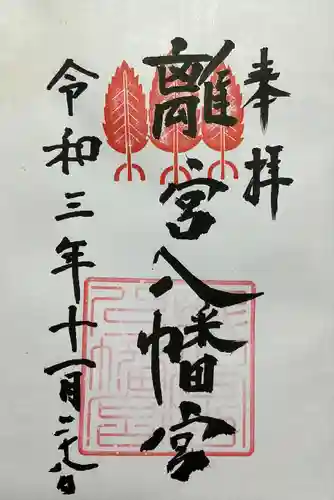 奉拝
離宮八幡宮
令和三年十一月二十九日